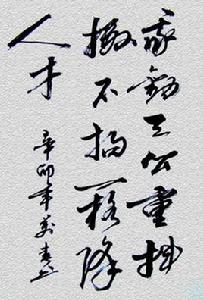 我劝天公重抖
擞不拘一格降
人才
辛卯年